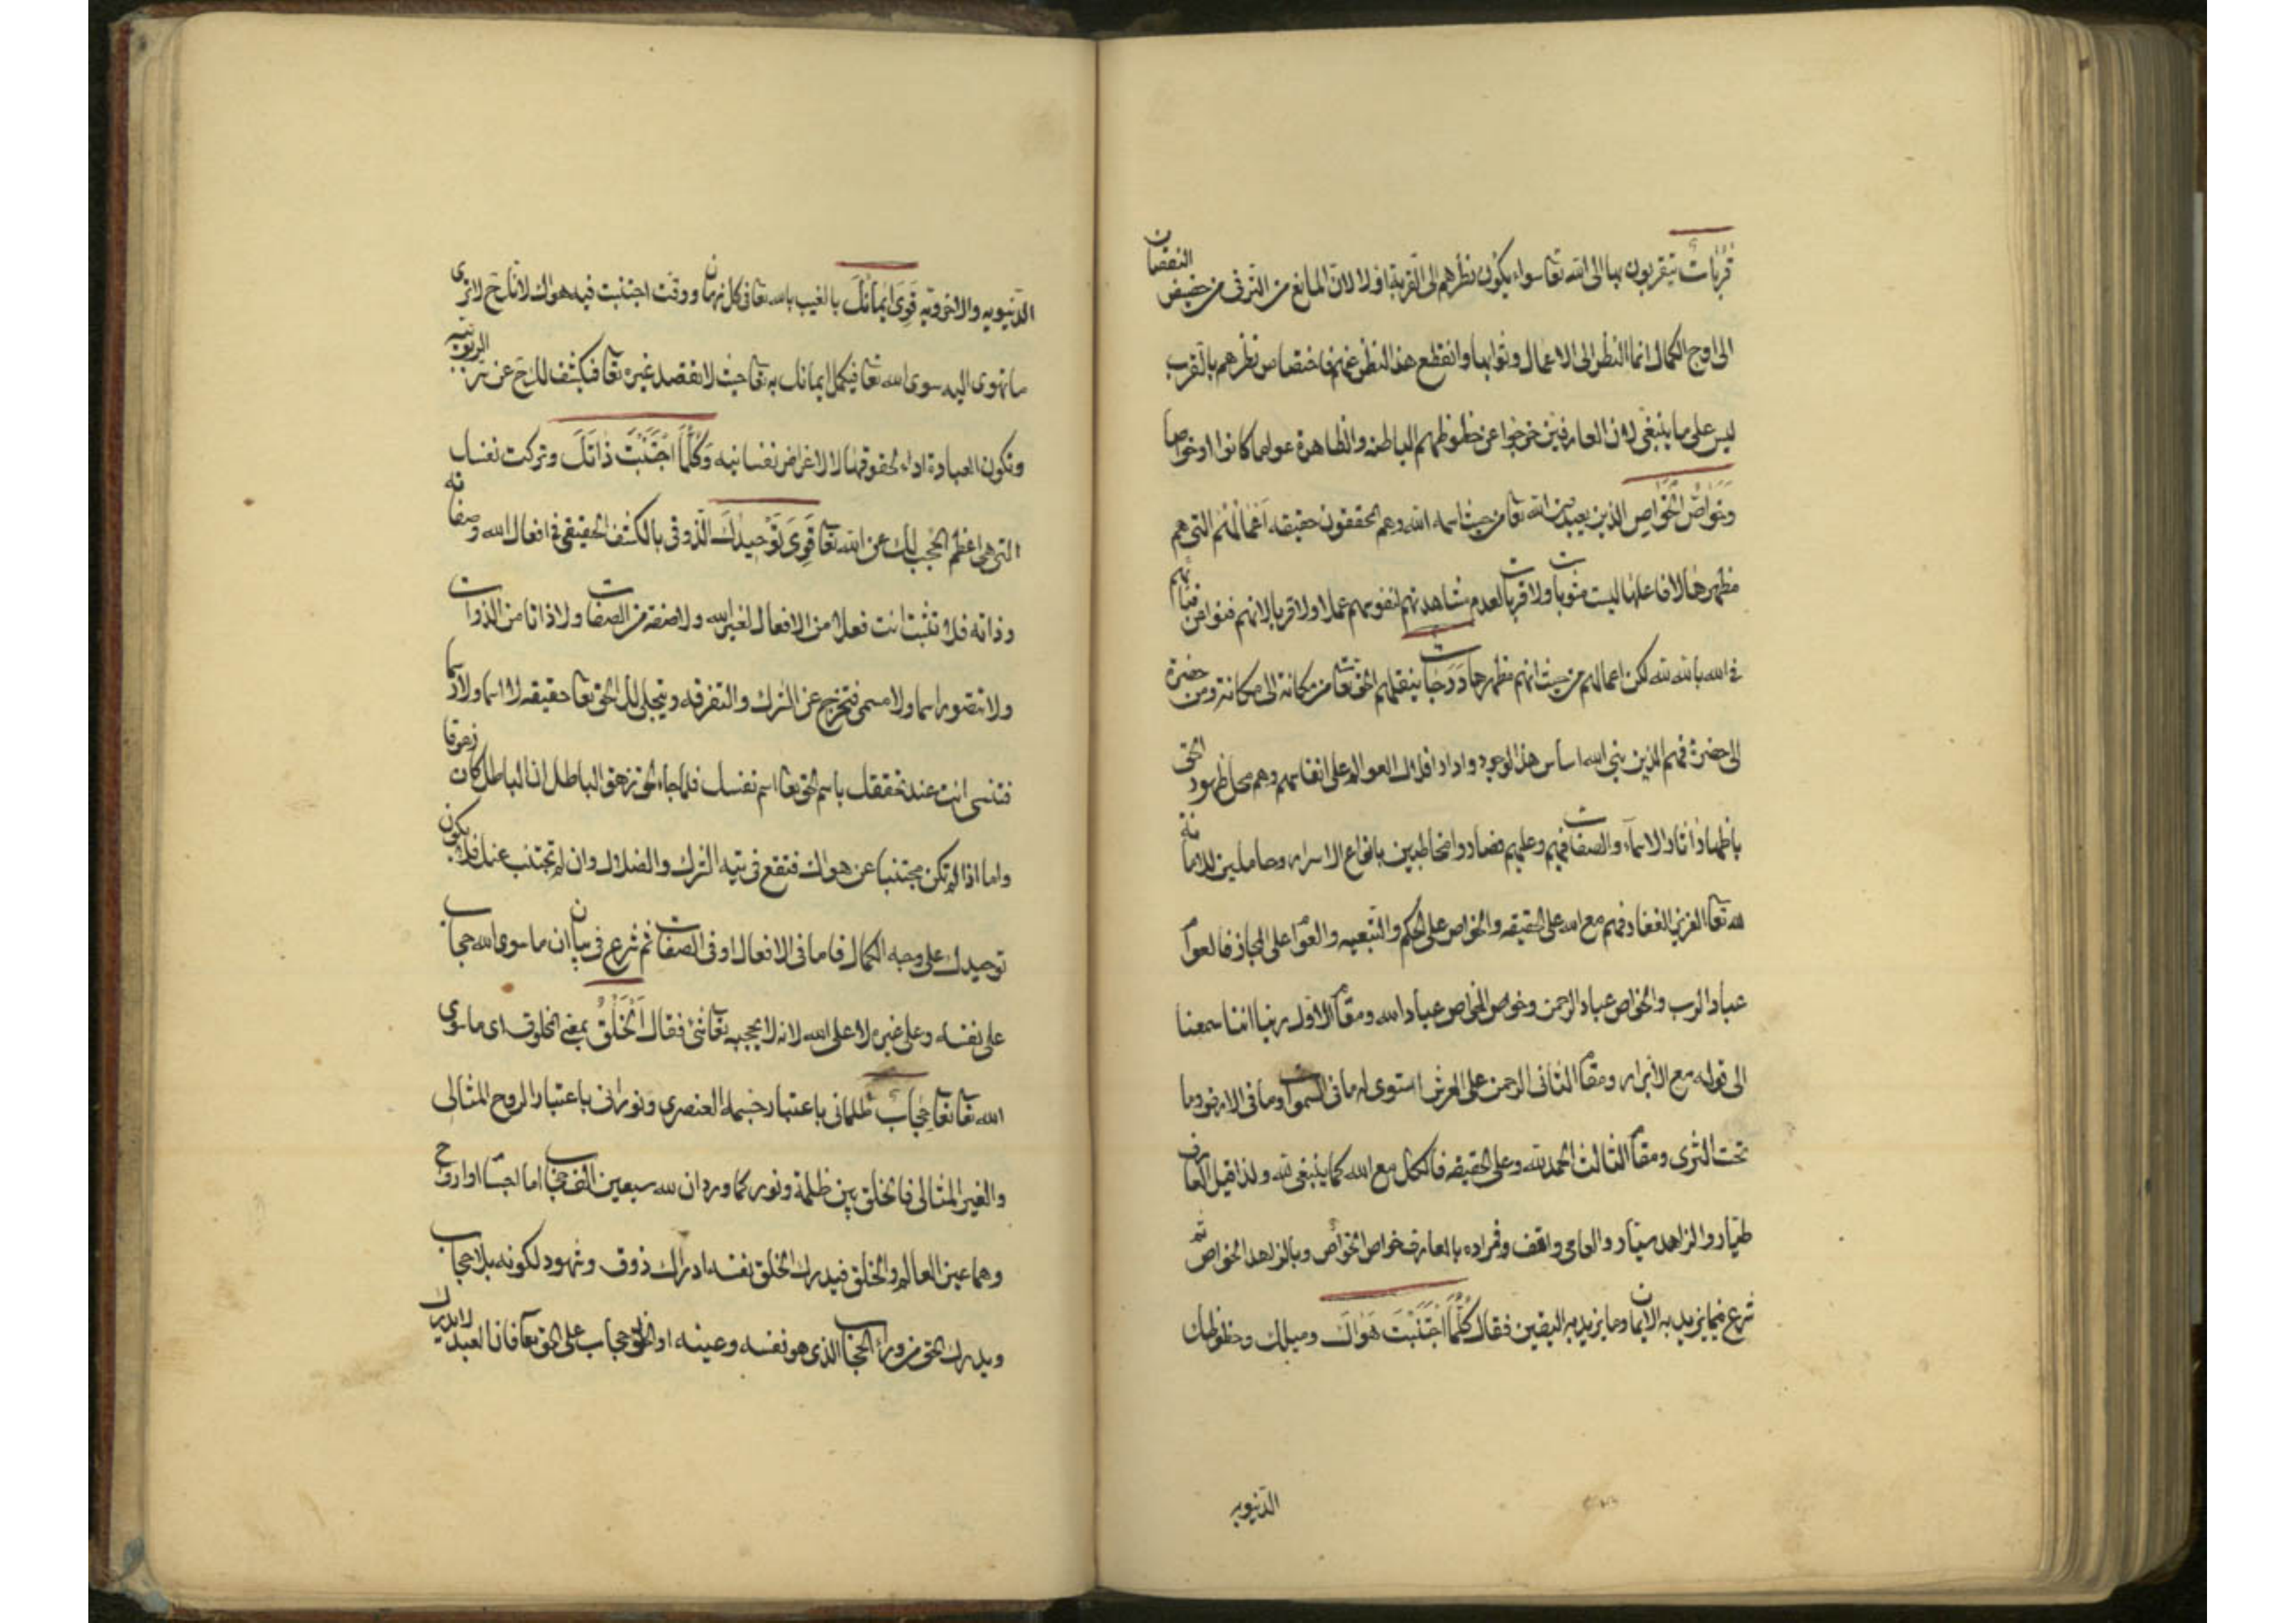 قُرُبَاتٌ يتقربون بها الى الله تعا سواء يكون نظرهم الى القربة اولا لان المانع من الترقى من حضيض النقصان
الى اوج الكمال انما النظر الى الاعمال وثوابها وانقطع هذا النظر عنهم فاختصاص نظرهم بالقرب
ليس على ما ينبغى لان العارفين خرجوا عن حظوظهم الباطنه والظاهرة عواما كانوا او خواصا
وخواصّ الخواص الذين يعبدون الله تعا من حيث اسماء الله وهم المحققون حقيقه اعمالهم التى هم
مظهرها لا فاعلها ليست مثوبات ولا قربات لعدم مشاهدتهم لنفوسهم عملا ولا قربا لانهم فنوا عن
فى الله بالله لله لكن اعمالهم من حيث انهم مظهرها دَرَجات ينقلهم الحق تعا من مكانة الى مكانة ومن حضرة
الى حضرة فهم الذين بنى الله اساس هذا الوجود وادار افلاك العوالم على انفاسهم وهم محل ظهور الحق
باظهار ذاتا والاسماء والصفات فيهم وعليهم فصاروا مخاطبين بانواع الاسرار وحاملين للامانة
لله تعا العزيز الغفار فهم مع الله على الحقيقه والخواص على الحكم والتبعيه والعوام على المجاز فالعوام
عباد الرب والخواص عباد الرحمن وخواص الخواص عباد الله ومقام الاول ربنا اننا سمعنا
الى قوله مع الابرار ومقام الثانى الرحمن على العرش استوى له ما فى السموات وما فى الارض وما
تحت الثرى ومقام الثالث الحمد لله وعلى الحقيقه فالكل مع الله كما ينبغى لله ولذا قيل العارف
طيّار والزاهد سيّار والعامى واقف ومراده بالعارف خواص الخواص وبالزاهد الخواص ثم
شرع فيما يزيد به الايمان وما يزيد به اليقين فقال كُلَّمَا اجْتَنَبْتَ هَوَاكَ وميلك وحظوظك
الدّنيويه
الدّنيويه والاخرويّه قَوِىَ اِيمَانُكَ بالغيب بالله تعا فى كل زمان ووقت اجتنبت فيه هواك لانك ح لا ترى
ما تهوى اليه سوى الله تعا فيكمل ايمانك به تعا حيث لا تقصد غيره تعا فيكشف لك ح عن سر الربوبيه
وتكون العبادة اداء لحقوقها لا لاغراض نفسانيه وَكُلَّمَا اجْتَنَبْتَ ذَاتَكَ وتركت نفسك
التى هى اعظم الحجب لك عن الله تعا قَوِىَ تَوْحِيدُكَ الذّوقى بالكشف الحقيقى فى افعال الله وصفاته
وذاته فلا تثبت انت فعلا من الافعال لغير الله ولا صفة من الصفات ولا ذاتا من الذوات
ولا تتصور اسما ولا مسمى فتخرج عن الشرك والتفرقه ويتجلى لك الحق تعا حقيقه لا اسما ولا رسما
فتنسى انت عند تحققك باسم الحق تعا اسم نفسك فلما جاء الحق زهق الباطل ان الباطل كان زهوقا
واما اذا لم تكن مجتنبا عن هواك فتقع فى تيه الشرك والضلال وان لم تجتنب عنك فلا يكون
توحيدك على وجه الكمال فاما فى الافعال او فى الصفات ثم شرع فى بيان ان ما سوى الله حجاب
على نفسه وعلى غيره لا على الله لانه لا يحجبه تعا شئ فقال اَلْخَلْقُ بمعنى المخلوق اى ما سوى
الله تعا حِجَابٌ ظلمانى باعتبار جسمه العنصرى ونورانى باعتبار الروح المثالى
والغير المثالى فالخلق بين ظلمة ونور كما ورد ان لله سبعين الف حجاب اما اجسام او ارواح
وهما عين العالم والخلق فيدرك الخلق نفسه ادراك ذوق وشهود لكونه بلا حجاب
ويدرك الحق من وراء الحجاب الذى هو نفسه وعينه او الخلق حجاب على الحق تعا فان العبد لا يدرك